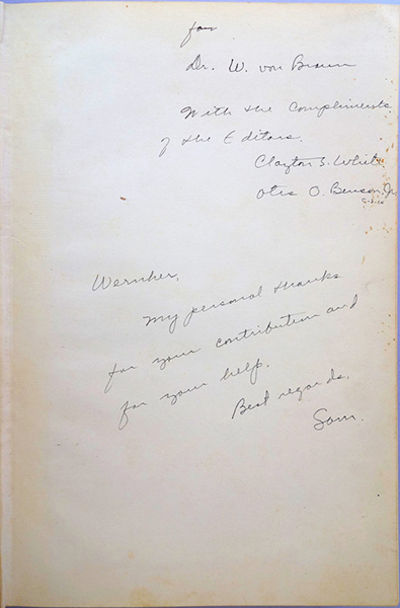 for
Dr. W. von Braun
With the Compliments
of the Editors.
Clayton S. White
Otis O. Benson, Jr.
Wernher,
My personal thanks
for your contribution and
for your help.
Best regards,
Sam.